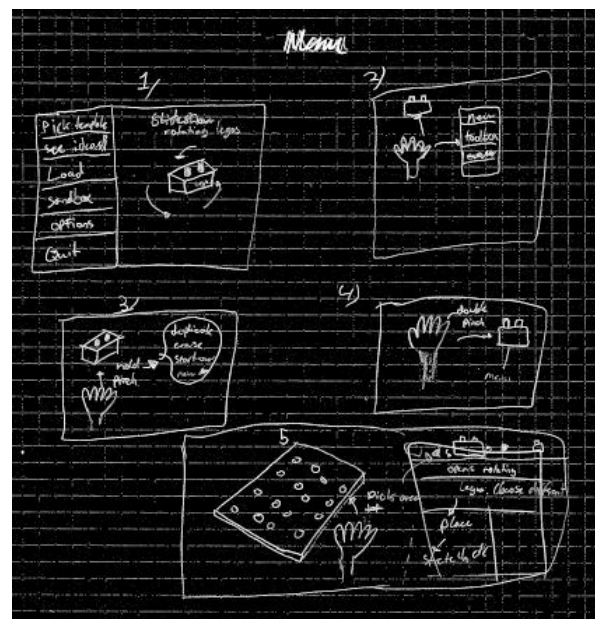 Menu
1/
Pick template
see ideas
Load
Sandbox
options
Quit
rotating legos
2)
new
toolbox
erase
3/
hold
pinch
duplicate
erase
start over
4)
double
pinch
menu
5
Pick area
opens rotating
legos, choose different
place